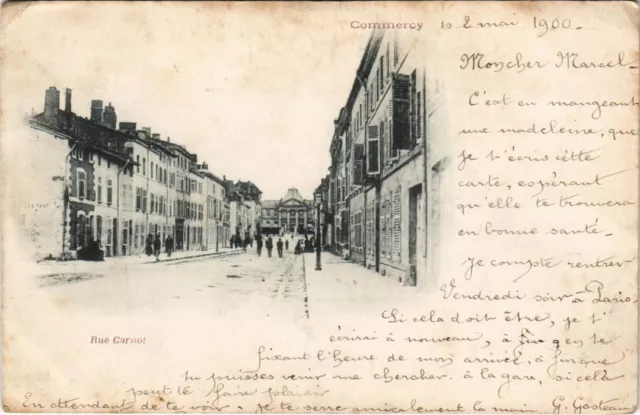 Commercy le 2 mai 1900
Mon cher Marcel
C'est en mangeant
une madeleine, que
je t'écris cétte
carte, espérant
qu'elle te trouvera
en bonne santé.
Je compte rentrer
Vendredi soir à Paris
Si cela doit être, je t'
écrirai à nouveau, à fin en te
fixant l'heure de mon arrivée, à fin que
tu puisses venir me chercher à la gare, si celà
peut té faire plaisir
En attendant de te voir, je te serre amicalement la main G.
Rue Carnot